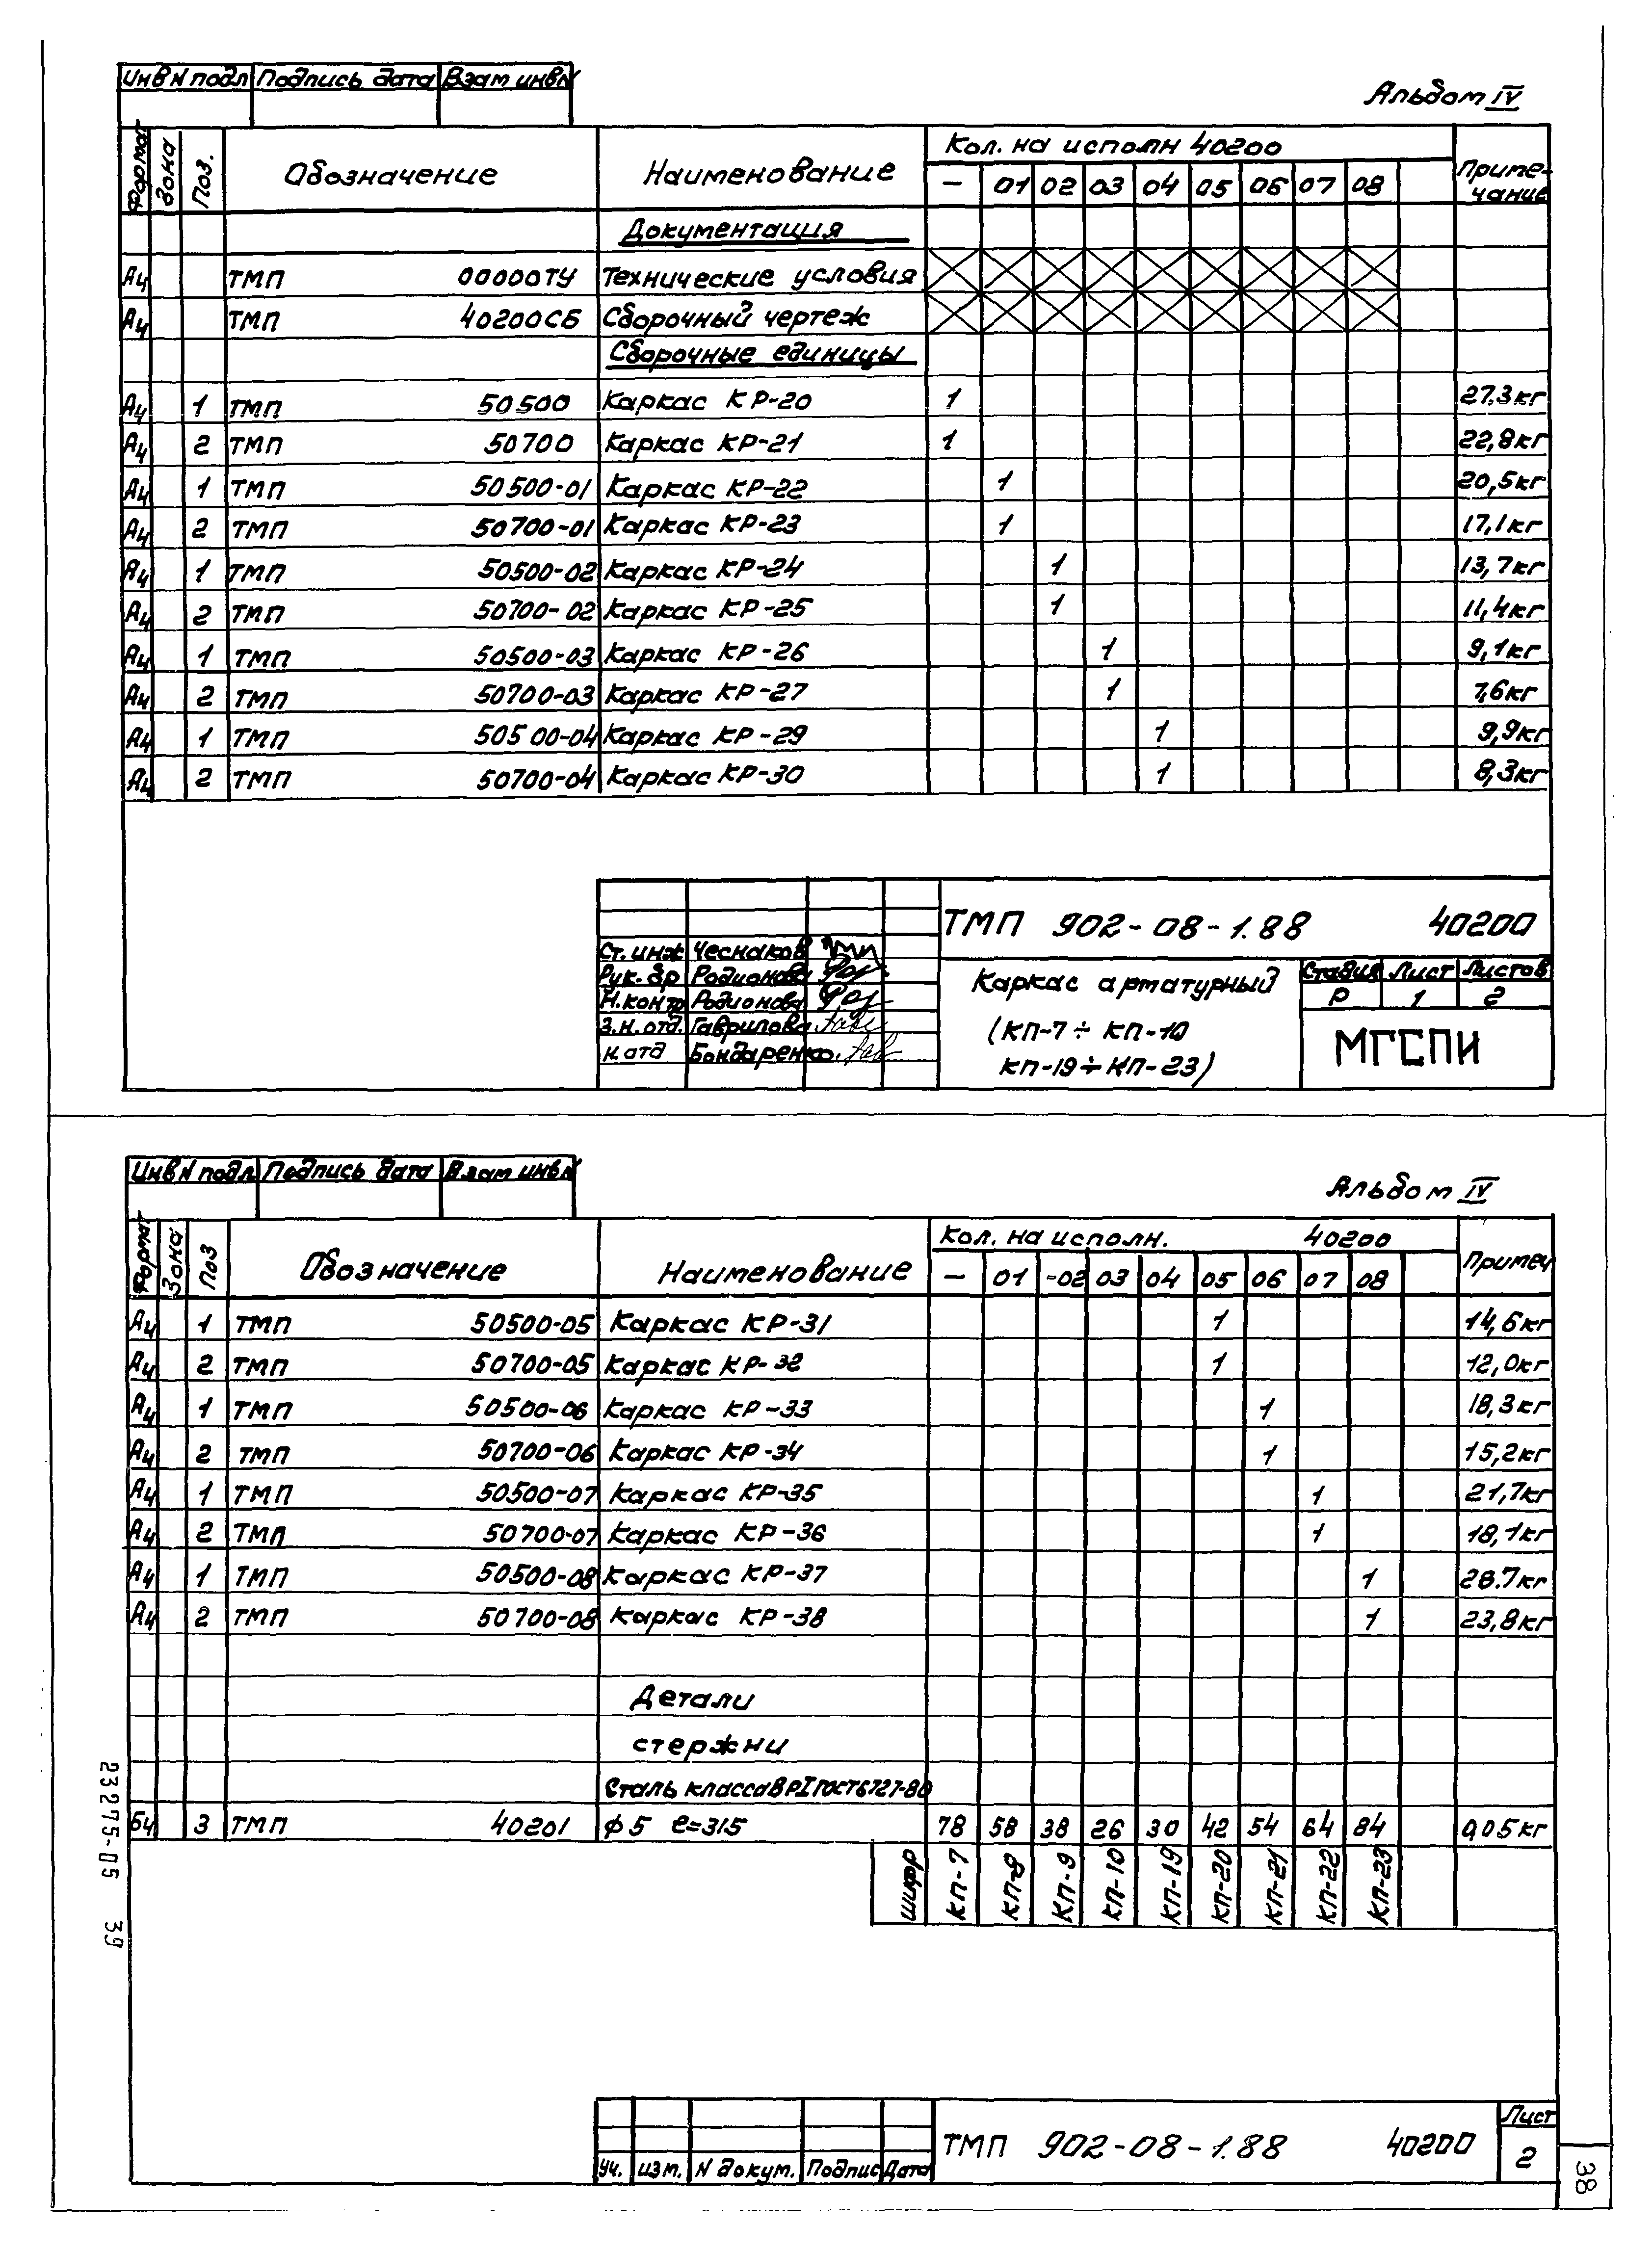 Инв N подл Подпись дата Взам инв N
Альбом IV
Формат Зона Поз. Обозначение Наименование Кол. на исполн 40200 Приме-чание
— 01 02 03 04 05 06 07 08
Документация
А4 ТМП 00000ТУ Технические условия
А4 ТМП 40200СБ Сборочный чертеж
Сборочные единицы
А4 1 ТМП 50500 Каркас КР-20 1 27.3кг
А4 2 ТМП 50700 Каркас КР-21 1 22,8кг
А4 1 ТМП 50500-01 Каркас КР-22 1 20,5кг
А4 2 ТМП 50700-01 Каркас КР-23 1 17,1кг
А4 1 ТМП 50500-02 Каркас КР-24 1 13,7кг
А4 2 ТМП 50700-02 Каркас КР-25 1 11,4кг
А4 1 ТМП 50500-03 Каркас КР-26 1 9,1кг
А4 2 ТМП 50700-03 Каркас КР-27 1 7,6кг
А4 1 ТМП 50500-04 Каркас КР-29 1 9,9кг
А4 2 ТМП 50700-04 Каркас КР-30 1 8,3кг
ТМП 902-08-1.88 40200
Ст. инж Чеснаков
Рук. бр Родионова
Н. контр Родионова
З.н.отд. Гаврилова
н. отд Бондаренко
Каркас арматурный
(КП-7÷КП-10
КП-19÷КП-23)
Стадия Лист Листов
Р 1 2
МГСПИ
Инв N подл Подпись дата Взам инв N
Альбом IV
Формат Зона Поз Обозначение Наименование Кол. на исполн. 40200 Примеч
— 01 -02 03 04 05 06 07 08
А4 1 ТМП 50500-05 Каркас КР-31 1 14,6кг
А4 2 ТМП 50700-05 Каркас КР-32 1 12,0кг
А4 1 ТМП 50500-06 Каркас КР-33 1 18,3кг
А4 2 ТМП 50700-06 Каркас КР-34 1 15,2кг
А4 1 ТМП 50500-07 Каркас КР-35 1 21,7кг
А4 2 ТМП 50700-07 Каркас КР-36 1 18,1кг
А4 1 ТМП 50500-08 Каркас КР-37 1 28.7кг
А4 2 ТМП 50700-08 Каркас КР-38 1 23,8кг
Детали
стержни
Сталь класса ВРI ГОСТ 6727-80
Б4 3 ТМП 40201 ф5 l=315 78 58 38 26 30 42 54 64 84 0,05кг
шифр КП-7 КП-8 КП-9 КП-10 КП-19 КП-20 КП-21 КП-22 КП-23
23275-05 39
ТМП 902-08-1.88 40200
Лист
2
Уч. изм. N докум. Подпис Дата
38